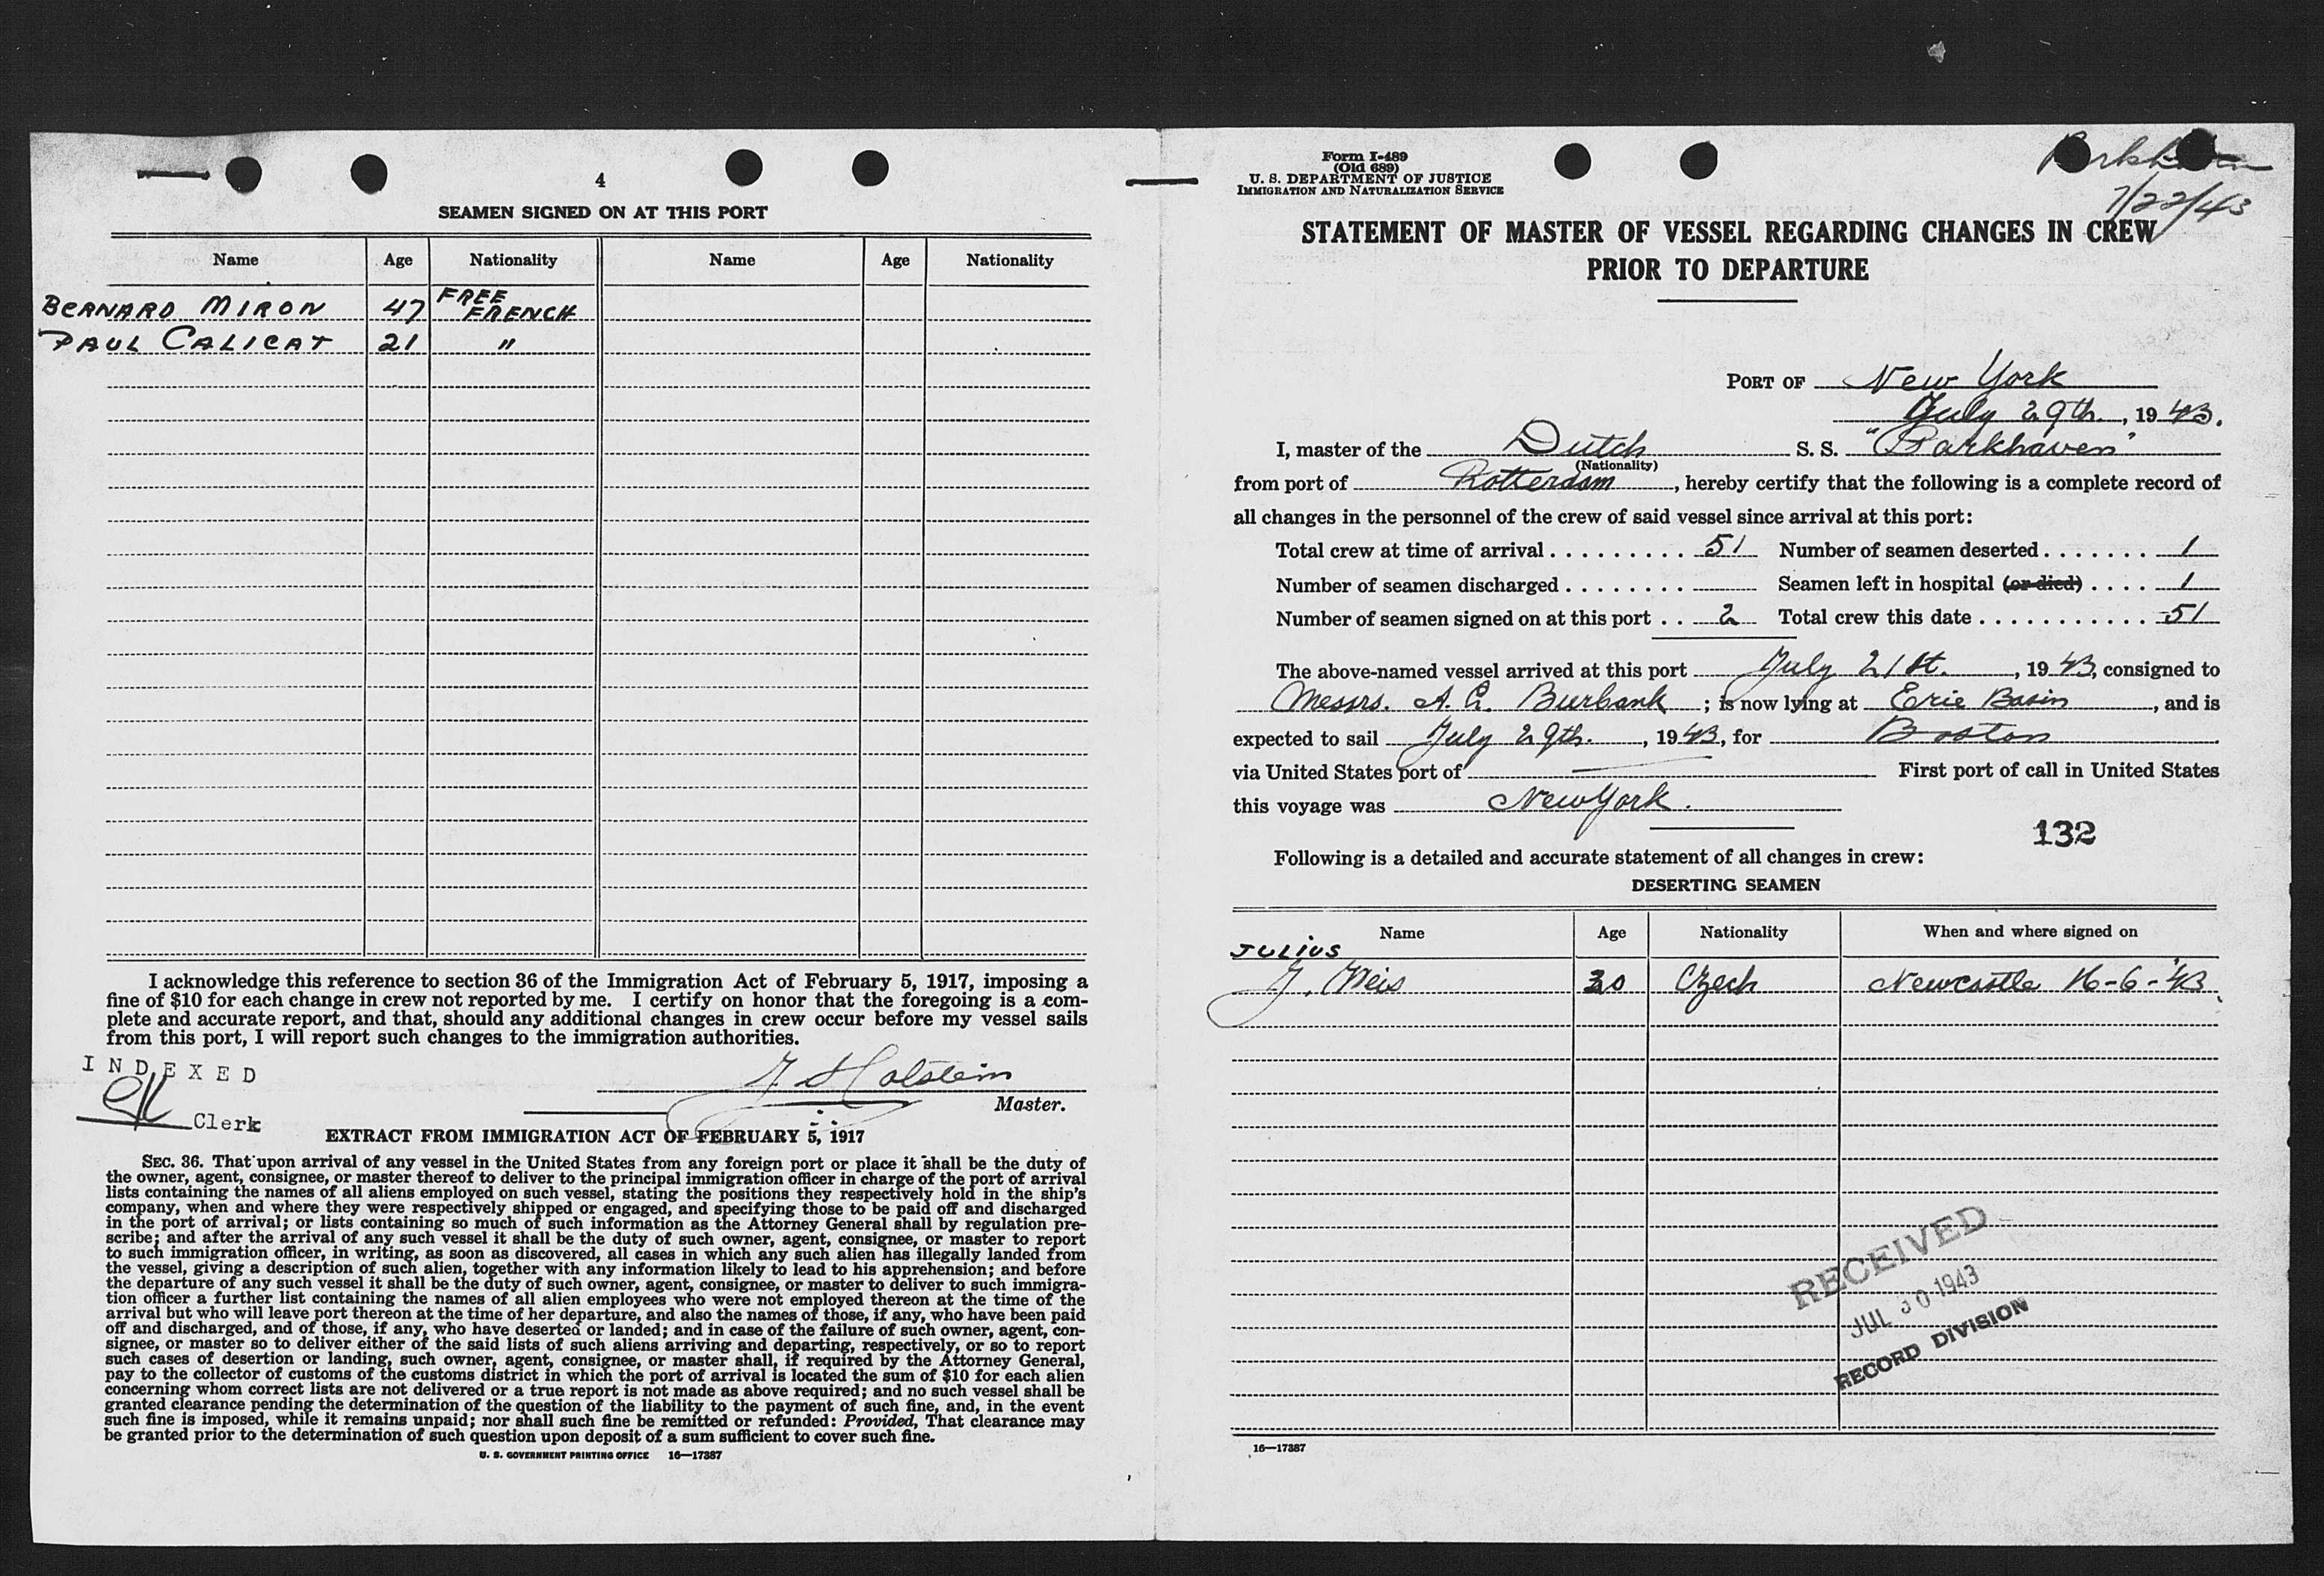 4
SEAMEN SIGNED ON AT THIS PORT
Name Age Nationality Name Age Nationality
BERNARD MIRON 47 FREE FRENCH
PAUL CALICAT 21 "
I acknowledge this reference to section 36 of the Immigration Act of February 5, 1917, imposing a
fine of $10 for each change in crew not reported by me. I certify on honor that the foregoing is a com-
plete and accurate report, and that, should any additional changes in crew occur before my vessel sails
from this port, I will report such changes to the immigration authorities.
INDEXED
Clerk
Holstein
Master.
EXTRACT FROM IMMIGRATION ACT OF FEBRUARY 5, 1917
SEC. 36. That upon arrival of any vessel in the United States from any foreign port or place it shall be the duty of
the owner, agent, consignee, or master thereof to deliver to the principal immigration officer in charge of the port of arrival
lists containing the names of all aliens employed on such vessel, stating the positions they respectively hold in the ship's
company, when and where they were respectively shipped or engaged, and specifying those to be paid off and discharged
in the port of arrival; or lists containing so much of such information as the Attorney General shall by regulation pre-
scribe; and after the arrival of any such vessel it shall be the duty of such owner, agent, consignee, or master to report
to such immigration officer, in writing, as soon as discovered, all cases in which any such alien has illegally landed from
the vessel, giving a description of such alien, together with any information likely to lead to his apprehension; and before
the departure of any such vessel it shall be the duty of such owner, agent, consignee, or master to deliver to such immigra-
tion officer a further list containing the names of all alien employees who were not employed thereon at the time of the
arrival but who will leave port thereon at the time of her departure, and also the names of those, if any, who have been paid
off and discharged, and of those, if any, who have deserted or landed; and in case of the failure of such owner, agent, con-
signee, or master so to deliver either of the said lists of such aliens arriving and departing, respectively, or so to report
such cases of desertion or landing, such owner, agent, consignee, or master shall, if required by the Attorney General,
pay to the collector of customs of the customs district in which the port of arrival is located the sum of $10 for each alien
concerning whom correct lists are not delivered or a true report is not made as above required; and no such vessel shall be
granted clearance pending the determination of the question of the liability to the payment of such fine, and, in the event
such fine is imposed, while it remains unpaid; nor shall such fine be remitted or refunded: Provided, That clearance may
be granted prior to the determination of such question upon deposit of a sum sufficient to cover such fine.
U. S. GOVERNMENT PRINTING OFFICE 16—17387
Form I-489
(Old 689)
U. S. DEPARTMENT OF JUSTICE
IMMIGRATION AND NATURALIZATION SERVICE
7/22/43
STATEMENT OF MASTER OF VESSEL REGARDING CHANGES IN CREW
PRIOR TO DEPARTURE
PORT OF New York
July 29th., 1943.
I, master of the Dutch S. S. "Parkhaven"
(Nationality)
from port of Rotterdam, hereby certify that the following is a complete record of
all changes in the personnel of the crew of said vessel since arrival at this port:
Total crew at time of arrival . . . . . . . . . 51 Number of seamen deserted . . . . . . . 1
Number of seamen discharged . . . . . . . . Seamen left in hospital (or died) . . . . 1
Number of seamen signed on at this port . . 2 Total crew this date . . . . . . . . . . . 51
The above-named vessel arrived at this port July 21st., 1943, consigned to
Messrs. A. C. Burbank; is now lying at Erie Basin, and is
expected to sail July 29th., 1943, for Boston
via United States port of — First port of call in United States
this voyage was New York.
132
Following is a detailed and accurate statement of all changes in crew:
DESERTING SEAMEN
Name Age Nationality When and where signed on
JULIUS
J. Weis 30 Czech Newcastle 16-6-'43.
RECEIVED
JUL 30 1943
RECORD DIVISION
16—17387